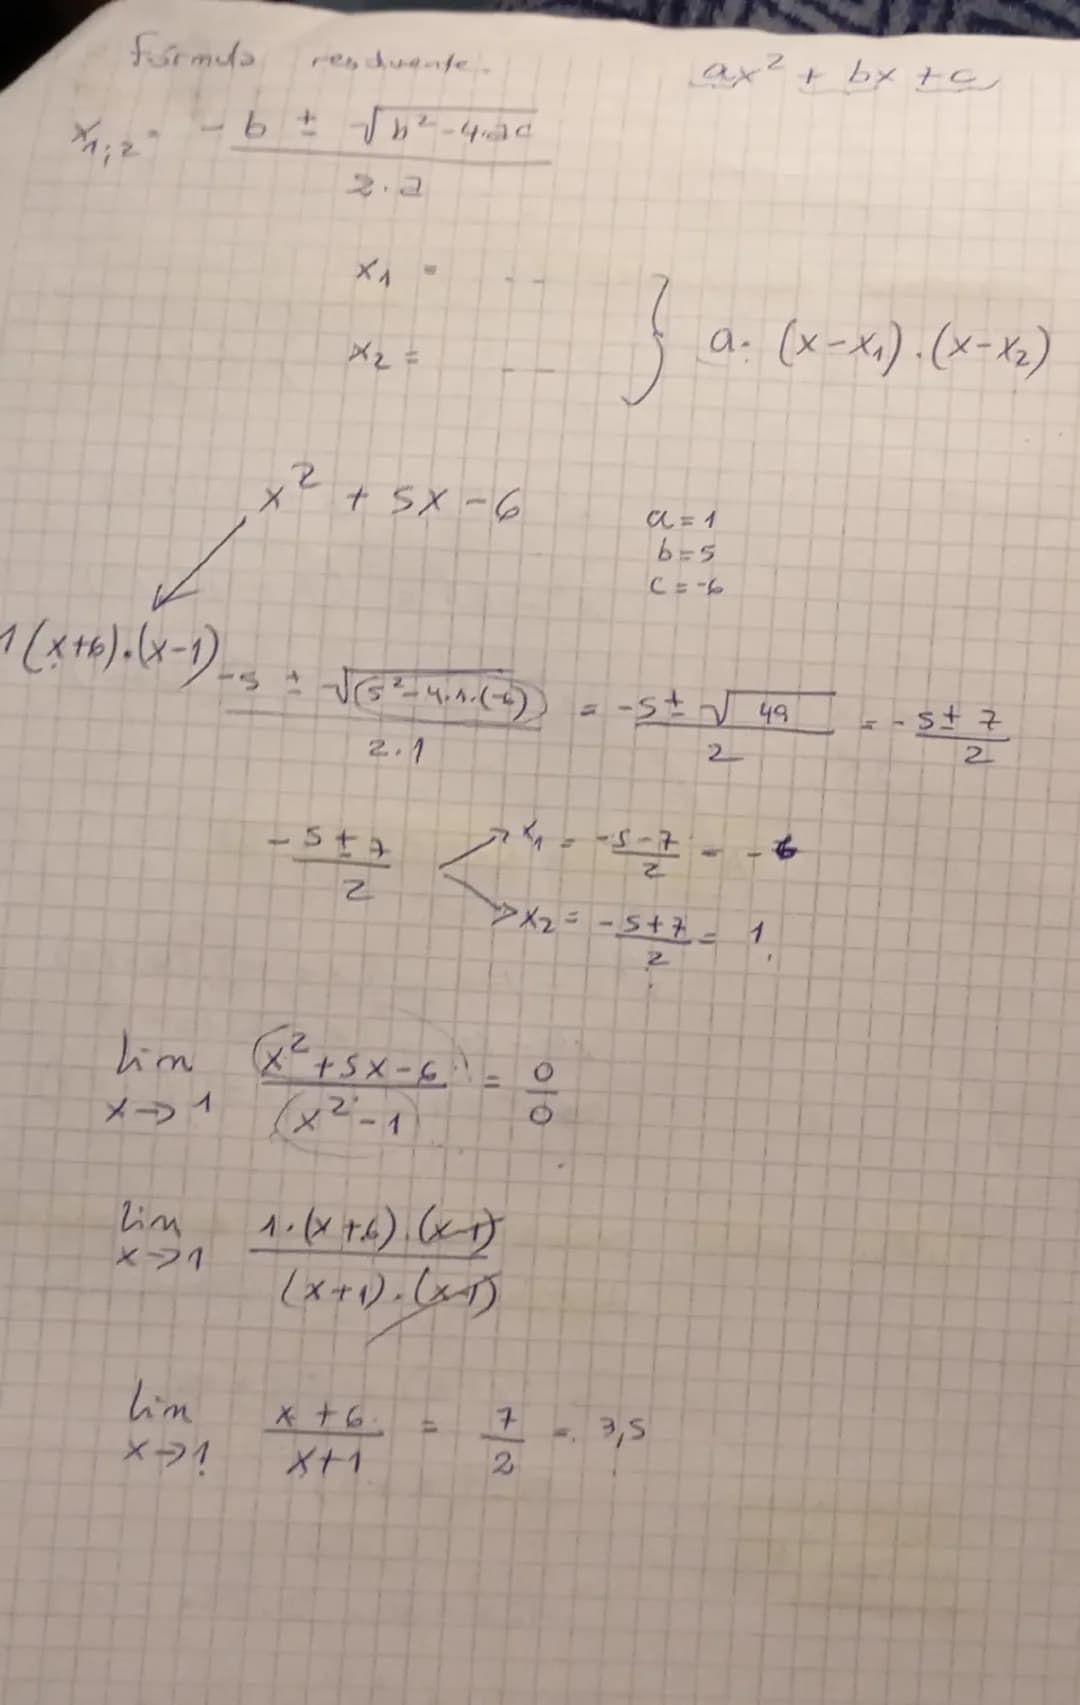 Fórmula resolvente.
ax² + bx + c
x₁;₂ = (-b ± √(b² - 4·ac)) / (2·a)
x₁ = - -
x₂ = - -
} a· (x-x₁)·(x-x₂)
x² + 5x - 6
a = 1
b = 5
c = -6
1(x+6)·(x-1)
(-5 ± √(5² - 4·1·(-6))) / (2·1) = (-5 ± √49) / 2 = (-5 ± 7) / 2
(-5 ± 7) / 2
x₁ = (-5-7) / 2 = -6
x₂ = (-5+7) / 2 = 1
lim x→1 (x²+5x-6) / (x²-1) = 0/0
lim x→1 (1·(x+6)·(x-1)) / ((x+1)·(x-1))
lim x→1 (x+6) / (x+1) = 7/2 = 3,5